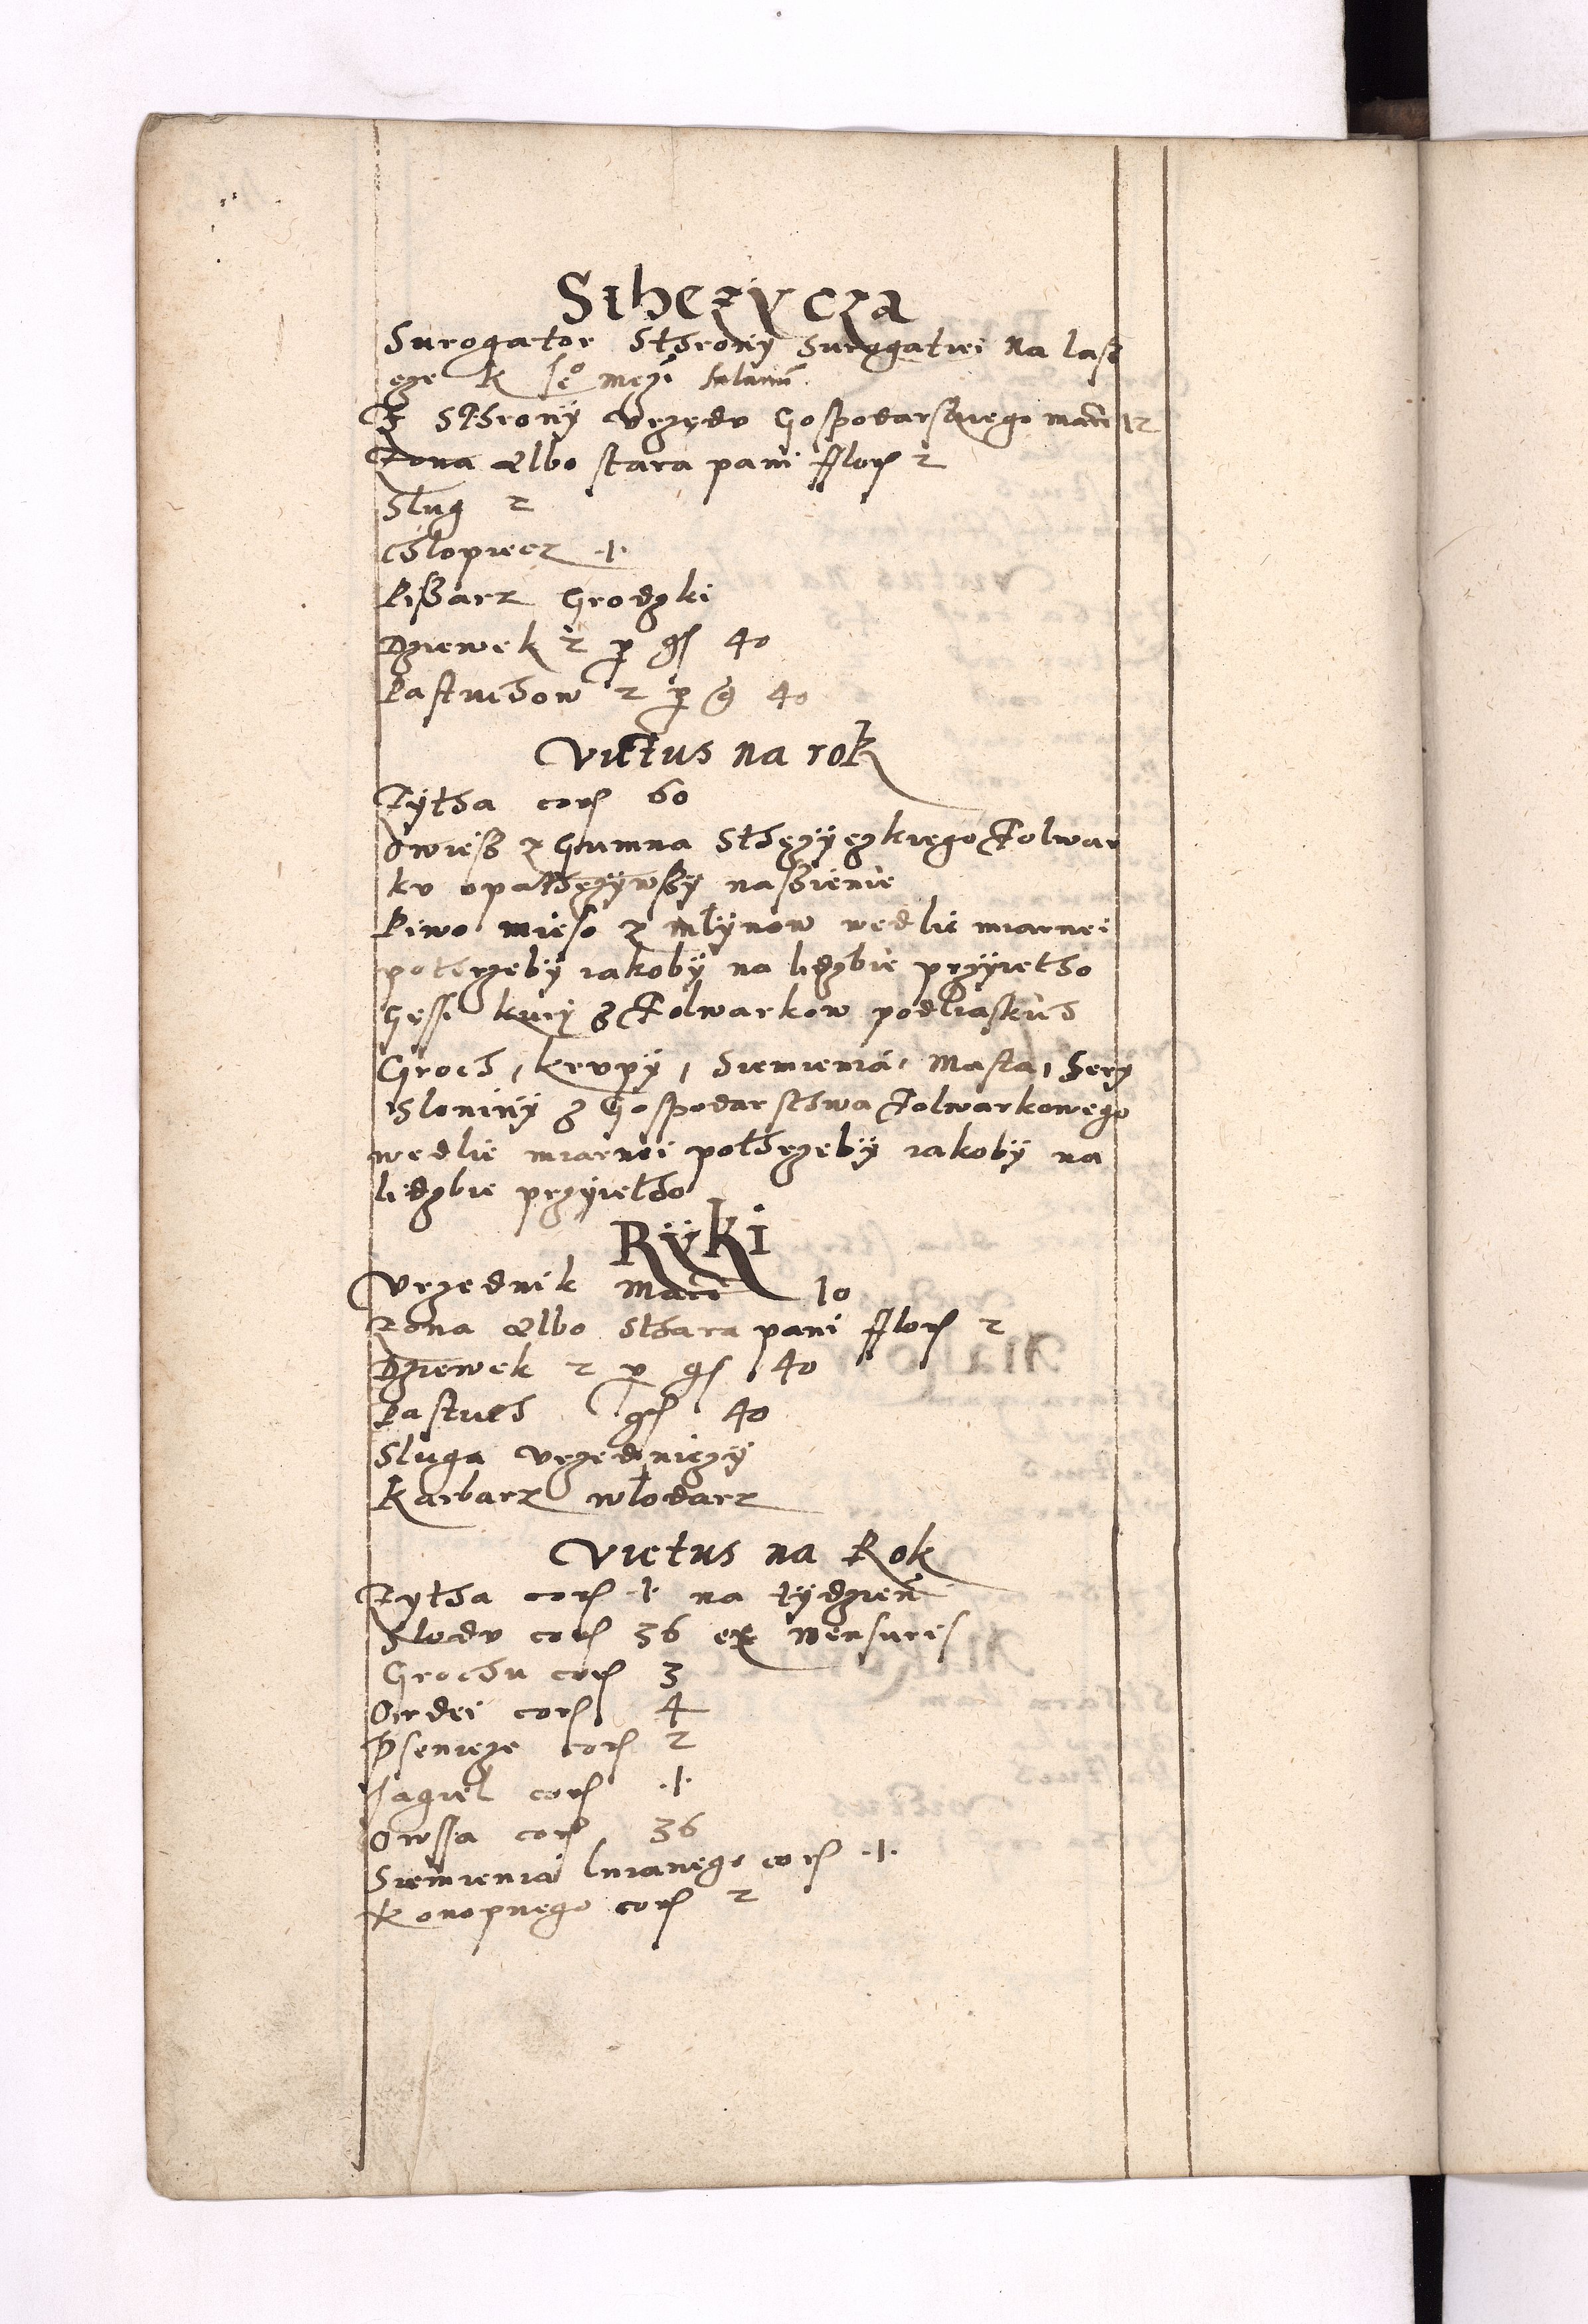 Sthezycza
Surogator Sthrony Surogatiei na łas
cze k
Z Sthrony Urzędu Gospodarskiego marc 12
Zona albo stara pani flor 2
Sług 2
Chlopiecz ·1·
Pißarz Grodzki
Dziewek 2 p gr 40
Pastuchow 2 p g 40
Victus na rok
Zytha cor 60
Owieß z Gumna Sthęzyczkiego Folwar
ku opathrzywßy naßienie
Piwo mieso z młynow wedlie miarnei
pothrzeby iakoby na liczbie przyietho
Gęssi kury z Folwarkow podliaskich
Groch, krupy, Siemienia, Masła, Sery
Sloniny z Gospodarsthwa Folwarkowego
wedlie miarnei pothrzeby iakoby na
liczbie przyietho
Ryki
Urzednik marc 10
Zona albo Sthara pani flor 2
Dziewek 2 p gr 40
Pastuch gr 40
Sluga urzedniczy
Karbarz włodarz
Victus na Rok
Zytha cor ·1· na tydzien
Slodu cor 36 ex mensuris
Grochu cor 3
Ordei cor 4
Psenicze cor 2
Jagiel cor ·1·
Owssa cor 36
Siemienia lnianego cor ·1·
Konopnego cor 2